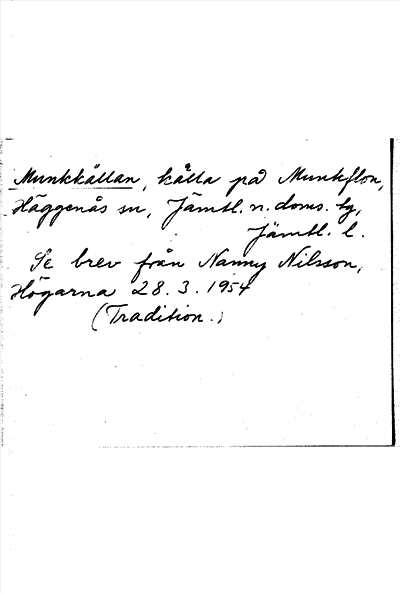 Munkkällan, källa på Munkflon,
Häggenås sn, Jämtl. n. doms. tg,
Jämtl. l.
Se brev från Nanny Nilsson,
Högarna 28. 3. 1954
(Tradition.)